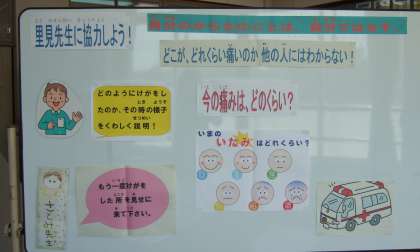 里見先生に協力しよう！
自分のからだのことは、自分で話そう
どこが、どれくらい痛いのか 他の人にはわからない！
どのようにけがをし
たのか、その時の様子
をくわしく説明！
今の痛みは、どのくらい？
いまの
いたみはどれくらい？
もう一度けがを
した所を見せに
来て下さい。
さとみ先生